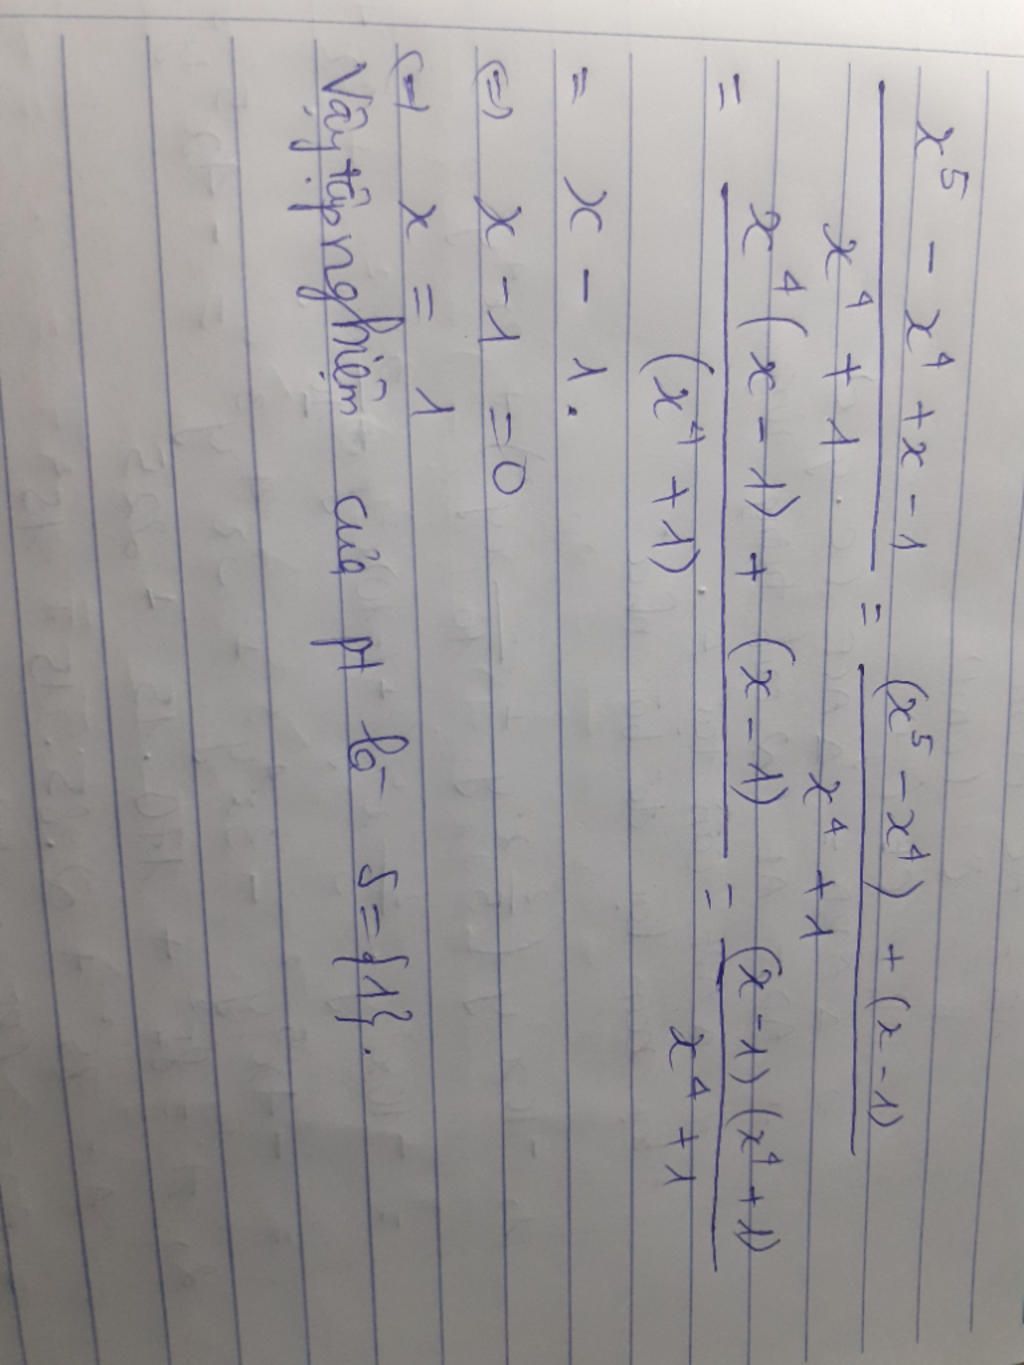 x⁵ - x⁴ + x - 1 / x⁴ + 1 = (x⁵ - x⁴) + (x - 1) / x⁴ + 1
= x⁴(x - 1) + (x - 1) / (x⁴ + 1) = (x - 1)(x⁴ + 1) / x⁴ + 1
= x - 1.
(=) x - 1 = 0
(=) x = 1
Vậy tập nghiệm của pt là S = {1}.